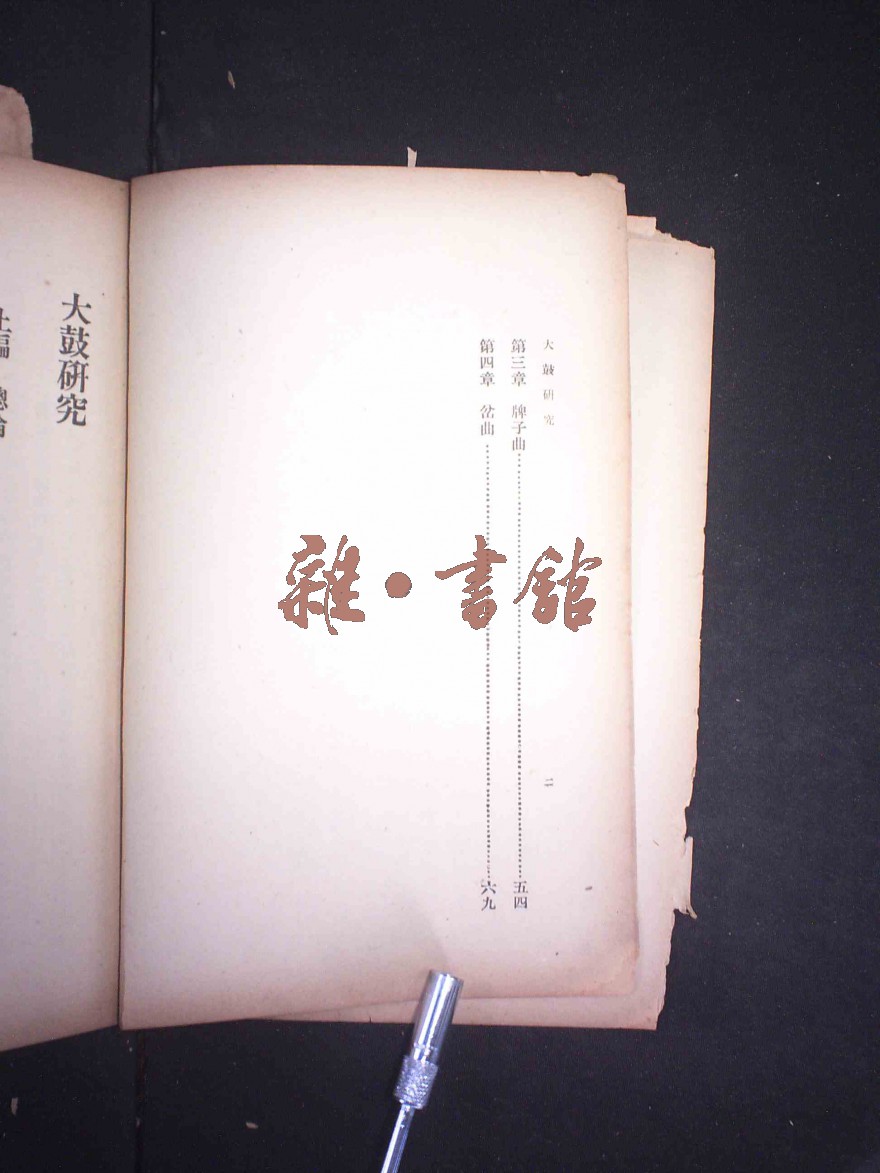 大鼓研究
二
第三章 牌子曲……五四
第四章 岔曲……六九
大鼓研究
上編 總論
雜·書館